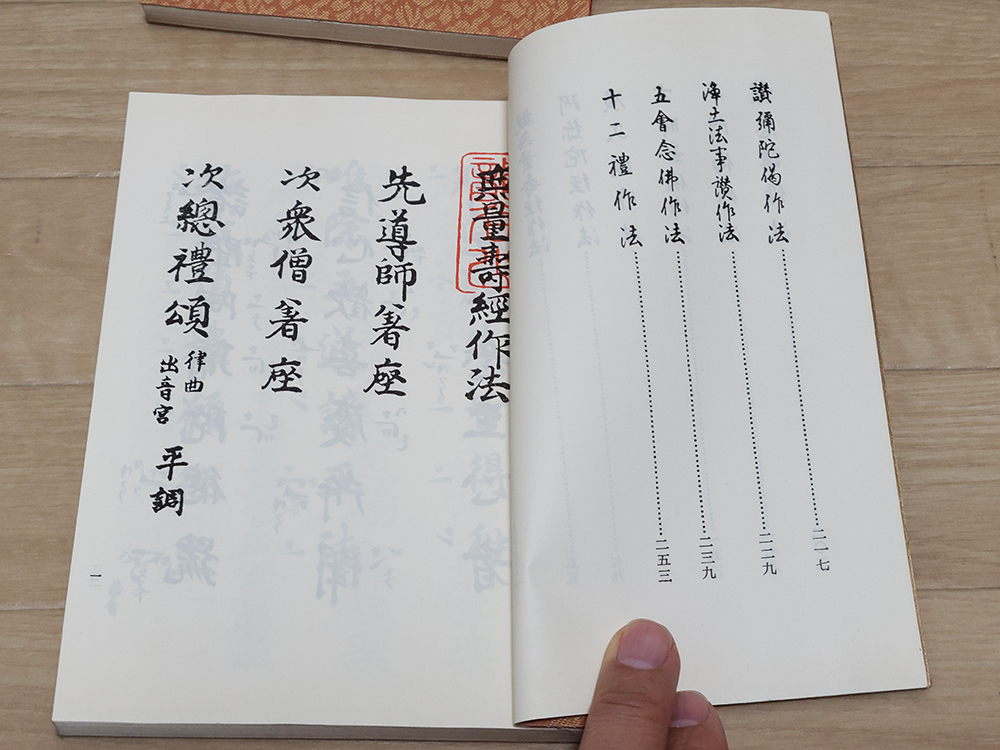 讚彌陀偈作法……二一七
淨土法事讚作法……二二九
五會念佛作法……二三九
十二禮作法……二五三
無量壽經作法
先導師著座
次衆僧著座
次總禮頌 律曲 出音宮 平調
一